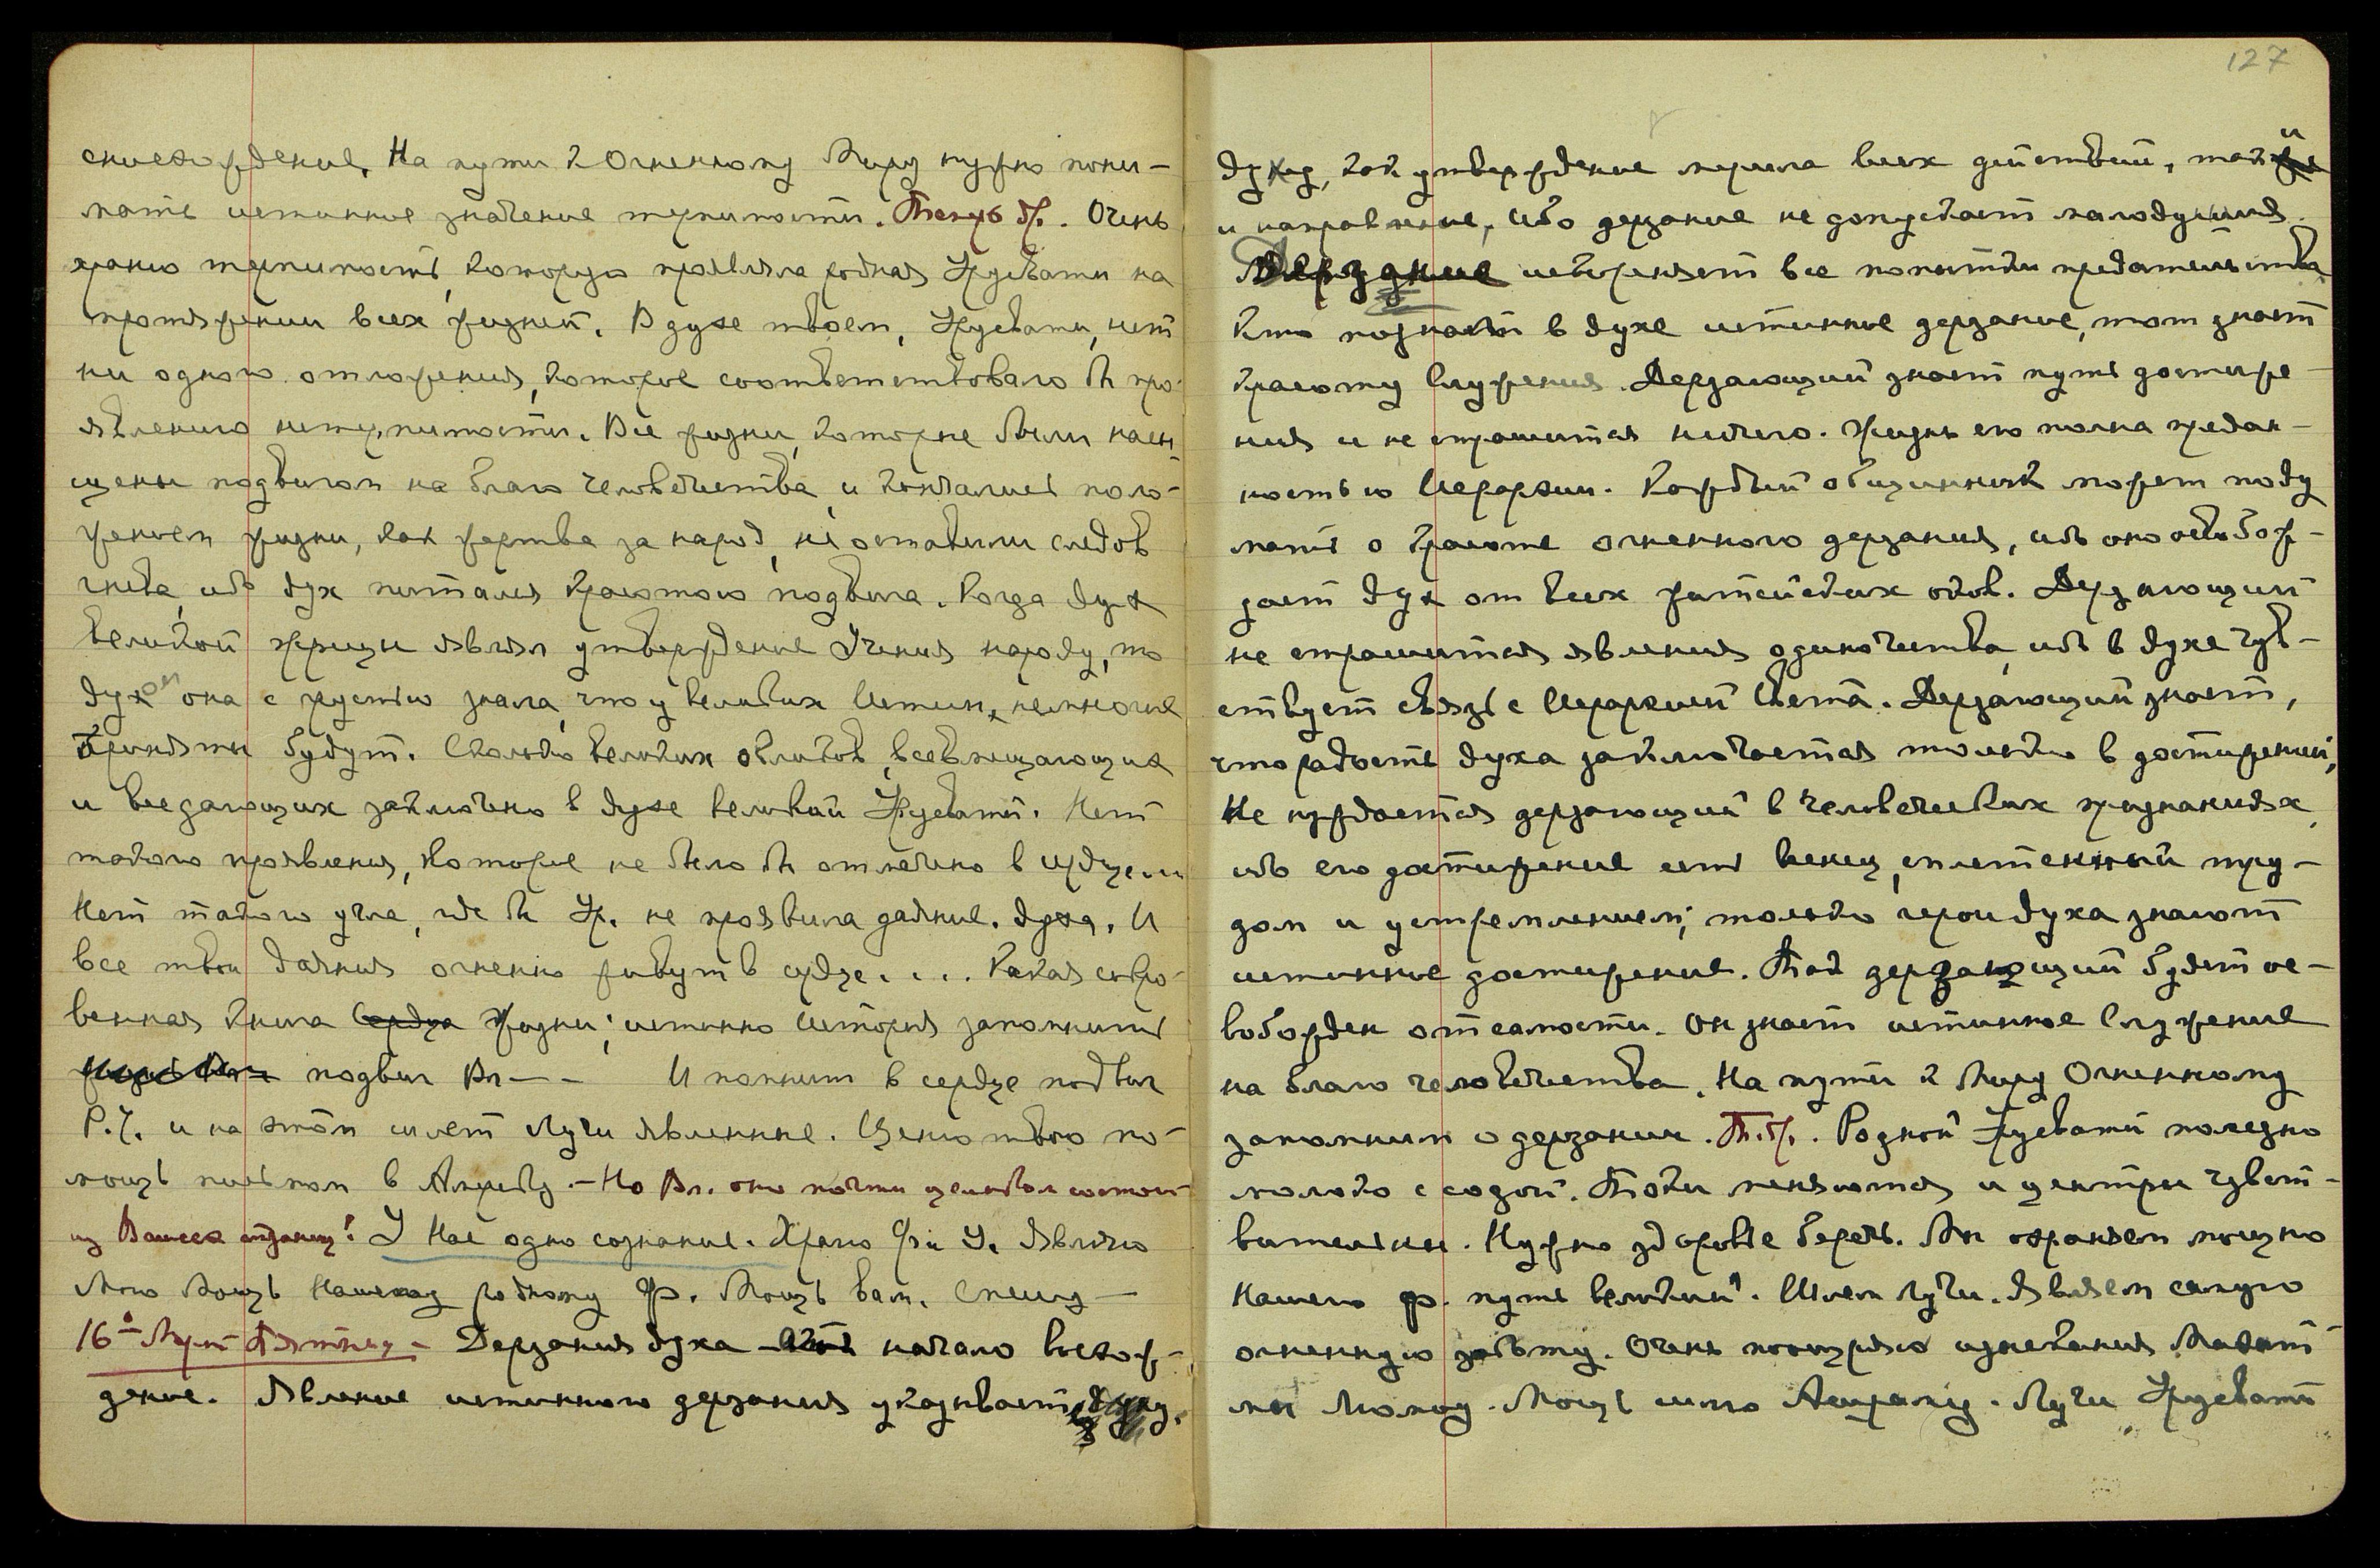 снисхождение. На пути к Огненному Миру нужно пони-
мать истинное значение терпимости. Теперь др. Очень
храню терпимость, которую проявляла родная Урусвати на
протяжении всех жизней. В духе твоем, Урусвати, нет
ни одного отложения, которое соответствовало бы про-
явлению нетерпимости. Все жизни, которые были насы-
щены подвигом на благо человечества и кончались поло-
жением жизни, как жертва за народ, не оставили следов
гнева, ибо дух питался красотою подвига. Когда дух
великой жрицы являл утверждение Учения народу, то
духом она с грустью знала, что у великих Истин немногие
приняты будут. Сколько великих обликов, всевмещающих
и вседающих заключено в духе великой Урусвати. Нет
такого проявления, которое не было бы отмечено в сердце ...
Нет такого угла, где бы Ур. не проявила даяние духа. И
все твои даяния огненно живут в сердце.... Какая сокро-
венная книга сердца жизни; истинно История запомнит
подвиг Вл — — И помним в сердце подвиг
Р.Х. и на этом шлет Лучи явленные. Ценю твою по-
мощь письмом в Америку. — Но Вл. оно почти целиком состоит
из Ваших страниц! У Нас одно сознание. Храню Ф. и У. Являю
Мою Мощь Нашему родному Ф. Мощь вам. Спешу —
16ое Март Пятница — Дерзания духа — начало восхож-
дения. Явление истинного дерзания указывает духу,
127
духу, как утверждение мерила всех действий, так и
и направление, ибо дерзание не допускает малодушия.
Дерзание искореняет все попытки предательства
Кто познает в духе истинное дерзание, тот знает
красоту Служения. Дерзающий знает путь достиже-
ния и не страшится ничего. Жизнь его полна предан-
ностью Иерархии. Каждый общинник может поду
мать о красоте огненного дерзания, ибо оно освобож-
дает дух от всех житейских оков. Дерзающий
не страшится явления одиночества, ибо в духе чув-
ствует связь с Иерархией Света. Дерзающий знает,
что радость духа заключается только в достижении,
Не нуждается дерзающий в человеческих признаниях,
ибо его достижение есть венец, сплетенный тру-
дом и устремлением; только герои духа знают
истинное достижение. Так дерзающий будет ос-
вобожден от самости. Он знает истинное Служение
на благо человечества. На пути к Миру Огненному
запомним о дерзании. Т. др. Родной Урусвати полезно
молоко с содой. Токи меняются и центры чувст-
вительны. Нужно здоровье беречь. Мы охраняем мощно
Нашего ф. путь великий. Шлем Лучи. Являем самую
огненную заботу. Очень поощряю
Мощь шлю. Лучи Урусвати